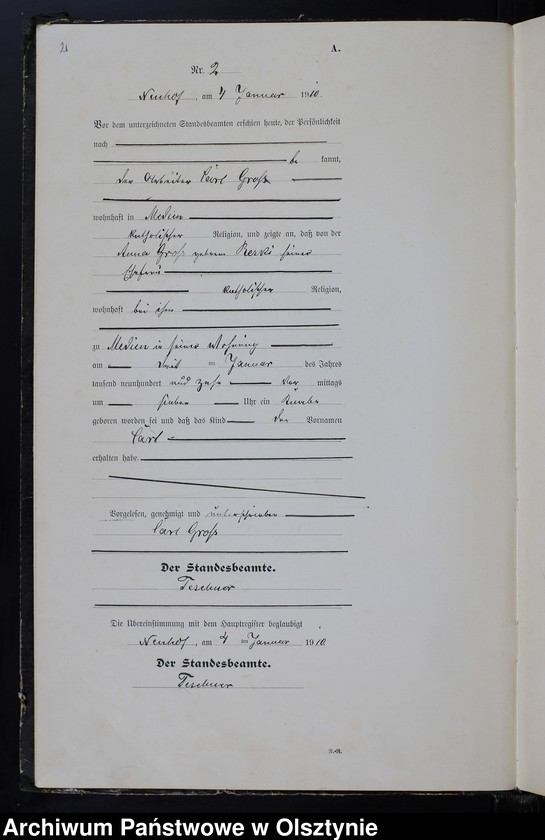 2
A.
Nr. 2
Neuhof, am 4 Januar 1910.
Vor dem unterzeichneten Standesbeamten erschien heute, der Persönlichkeit
nach
be kannt,
der Arbeiter Carl Groß
wohnhaft in
katholischer Religion, und zeigte an, daß von der
Anna Groß geborne seiner
Ehefrau
katholischer Religion,
wohnhaft bei ihm
zu in seiner Wohnung
am drei ten Januar des Jahres
tausend neunhundert und zehn Vor mittags
um sieben Uhr ein Knabe
geboren worden sei und daß das Kind den Vornamen
Carl
erhalten habe.
Vorgelesen, genehmigt und unterschrieben
Carl Groß
Der Standesbeamte.
Teschner
Die Übereinstimmung mit dem Hauptregister beglaubigt
Neuhof, am 4 ten Januar 1910.
Der Standesbeamte.
Teschner
Archiwum Państwowe w Olsztynie